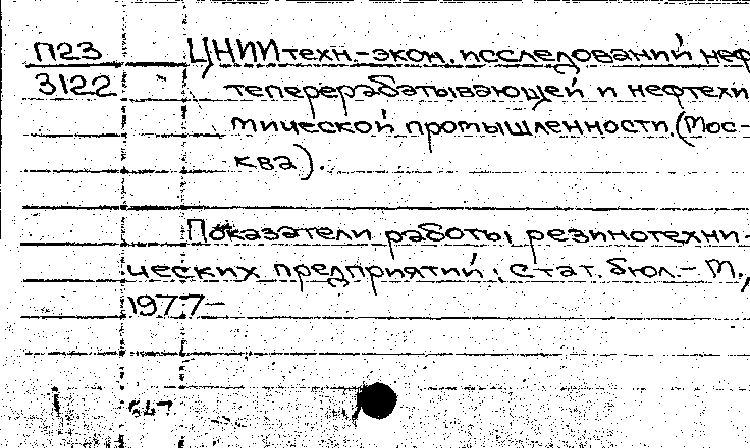 П23 ЦНИИ техн.-экон. исследований неф
3122 теперерабатывающей и нефтехи
мической промышленности. (Мос-
ква).
Показатели работы резинотехни-
ческих предприятий; Стат. бюл. - М.,
1977-
647